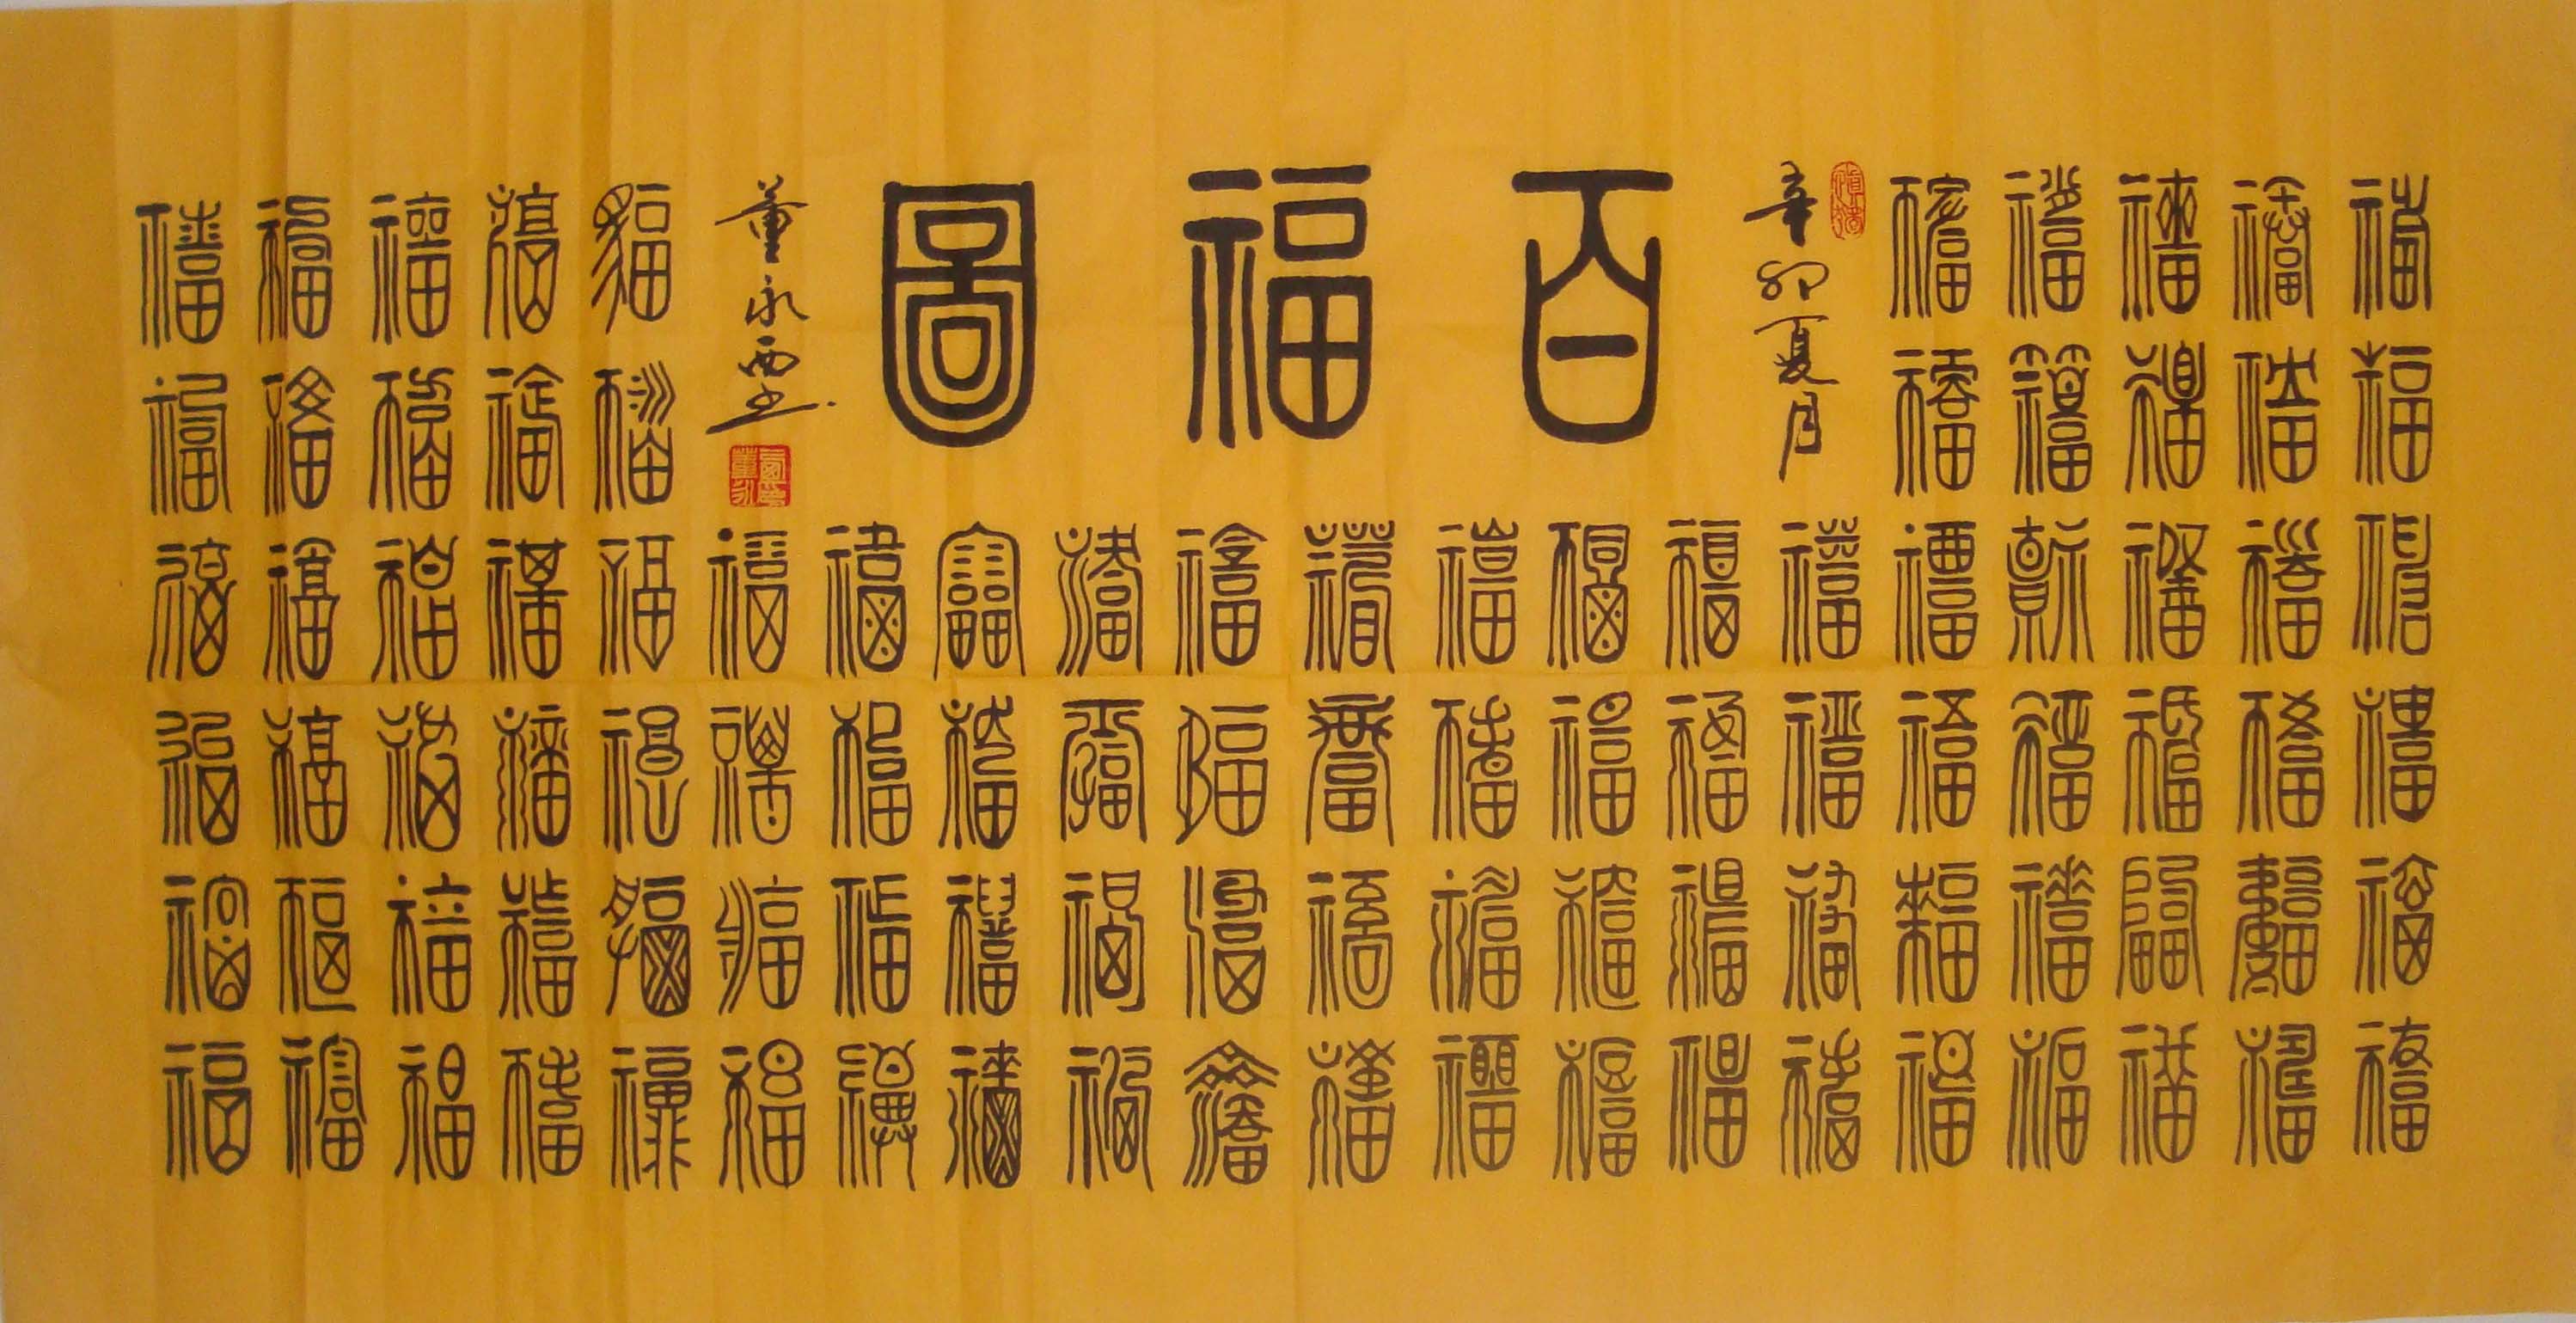 百福圖
辛卯夏月
董永西书
福福福福福福
福福福福福福
福福福福福福
福福福福福福
福福福福福福
福福福福
福福福福
福福福福
福福福福
福福福福
福福福福
福福福福
福福福福
福福福福
福福福福
福福福福福福
福福福福福福
福福福福福福
福福福福福福
福福福福福福